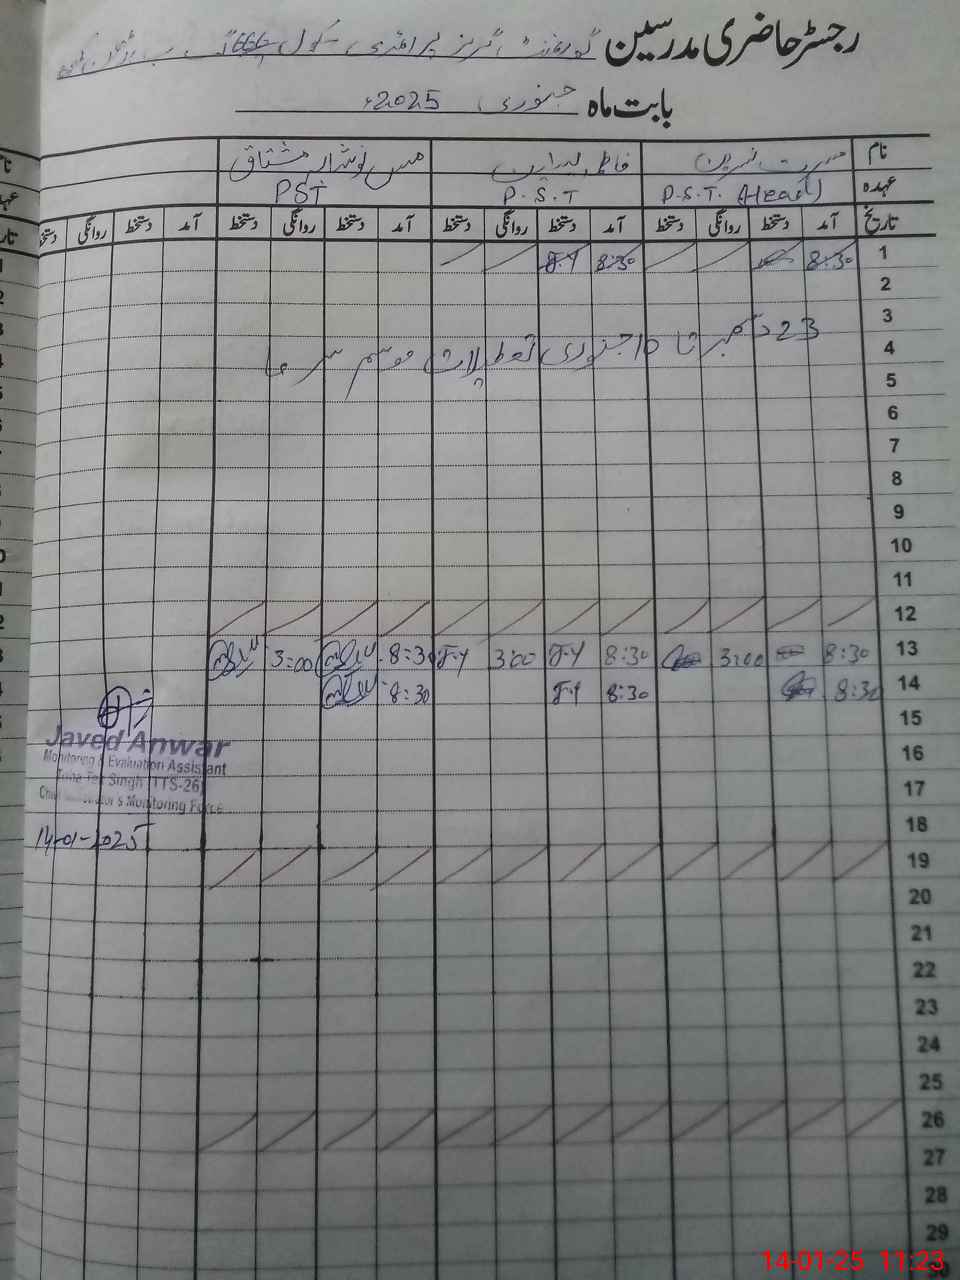 رجسٹر حاضری مدرسین گورنمنٹ گرلز پرائمری سکول
بابت ماہ جنوری 2025ء
نام مسرت نسرین فاطمہ مس نوشابہ مشتاق
عہدہ P.S.T. (Head) P.S.T PST
تاریخ آمد دستخط روانگی دستخط آمد دستخط روانگی دستخط آمد دستخط روانگی دستخط آمد دستخط روانگی دستخط
1 8:30 8:30 F.Y
2
3
23 دسمبر تا 10 جنوری تعطیلات موسم سرما
4
5
6
7
8
9
10
11
12
13 8:30 3:00 8:30 F.Y 3:00 F.Y 8:30 3:00
14 8:30 8:30 F.Y 8:30
15
Javed Anwar
16
Monitoring & Evaluation Assistant
17
Toba Tek Singh (TTS-26)
Chief Minister's Monitoring Force
18
14-01-2025
19
20
21
22
23
24
25
26
27
28
29
14-01-25 11:23